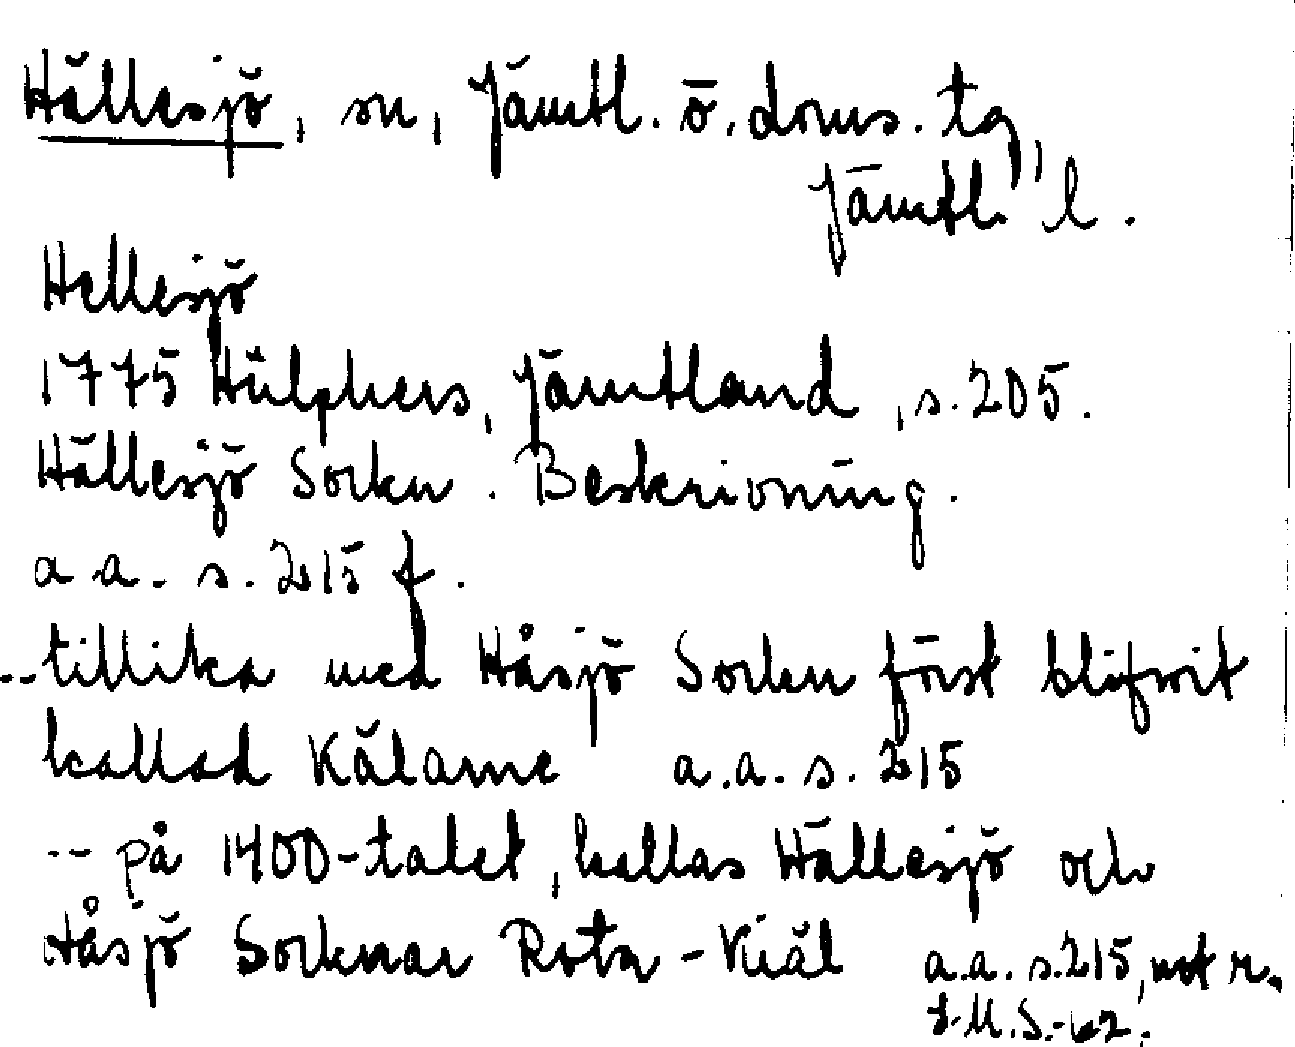 Hällesjö, sn, Jämtl. ö. doms. tg,
Jämtl. l.
Hellesjö
1775 Hülphers, Jämtland, s. 205.
Hällesjö Sorkn. Beskrivning.
a a. s. 215 f.
-- tillika med Håsjö Sorkn först blifwit
kallad Kälarne a.a. s. 215
-- på 1400-talet, kallas Hällesjö och
Håsjö Sorknar Rotn-Kiäl a.a. s. 215, not r.
I.M.S.-62.